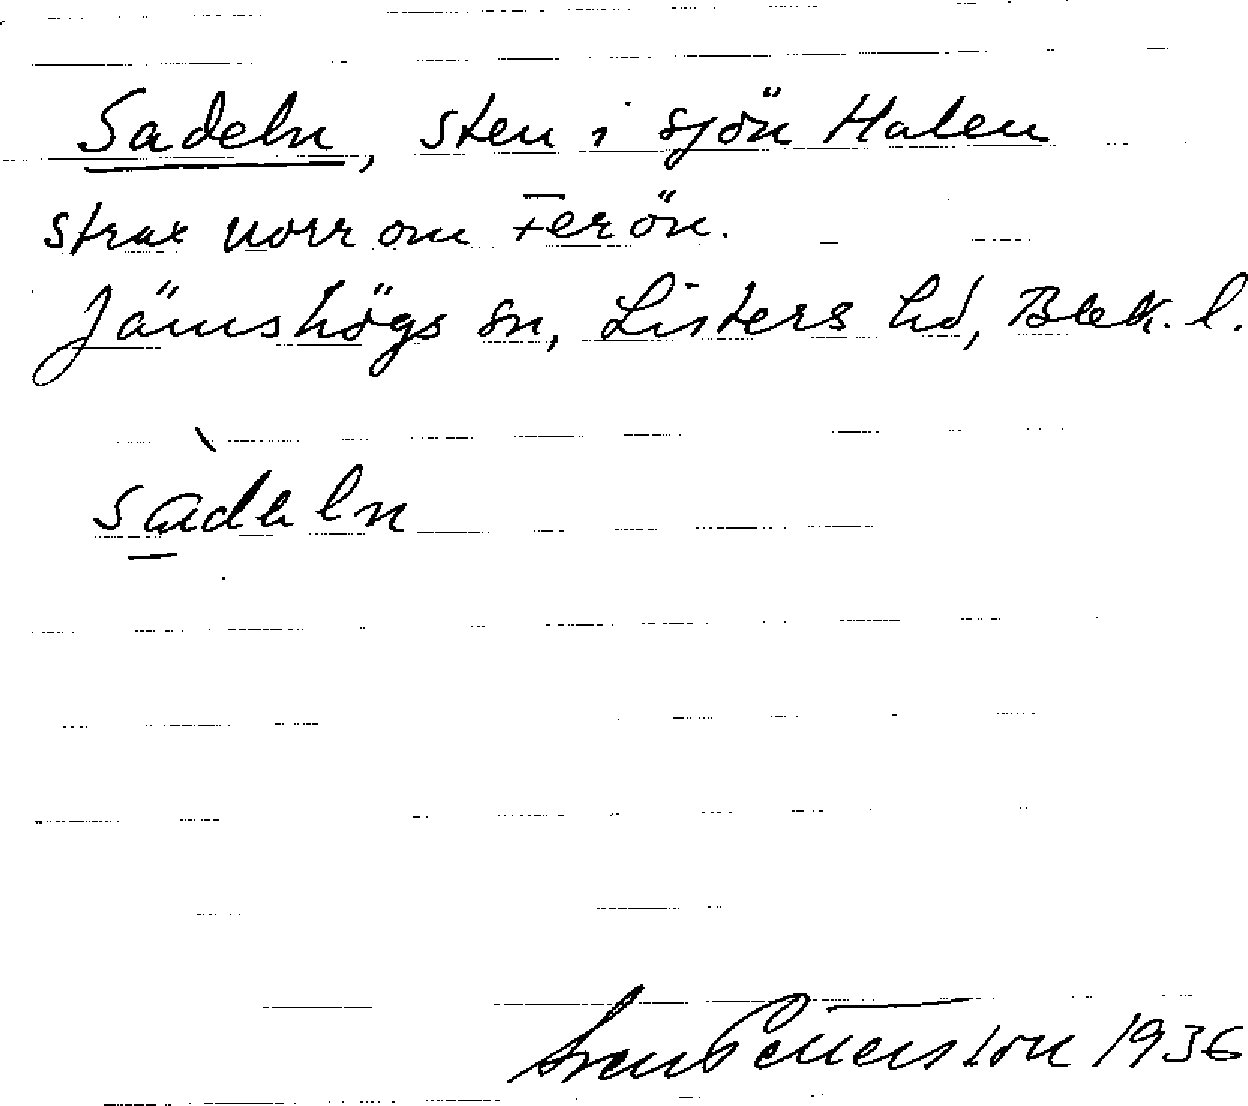 Sadeln, sten i sjön Halen
strax norr om Ferön.
Jämshögs sn, Listers hd, Blek. l.
sàdeln
Sven Pettersson 1936